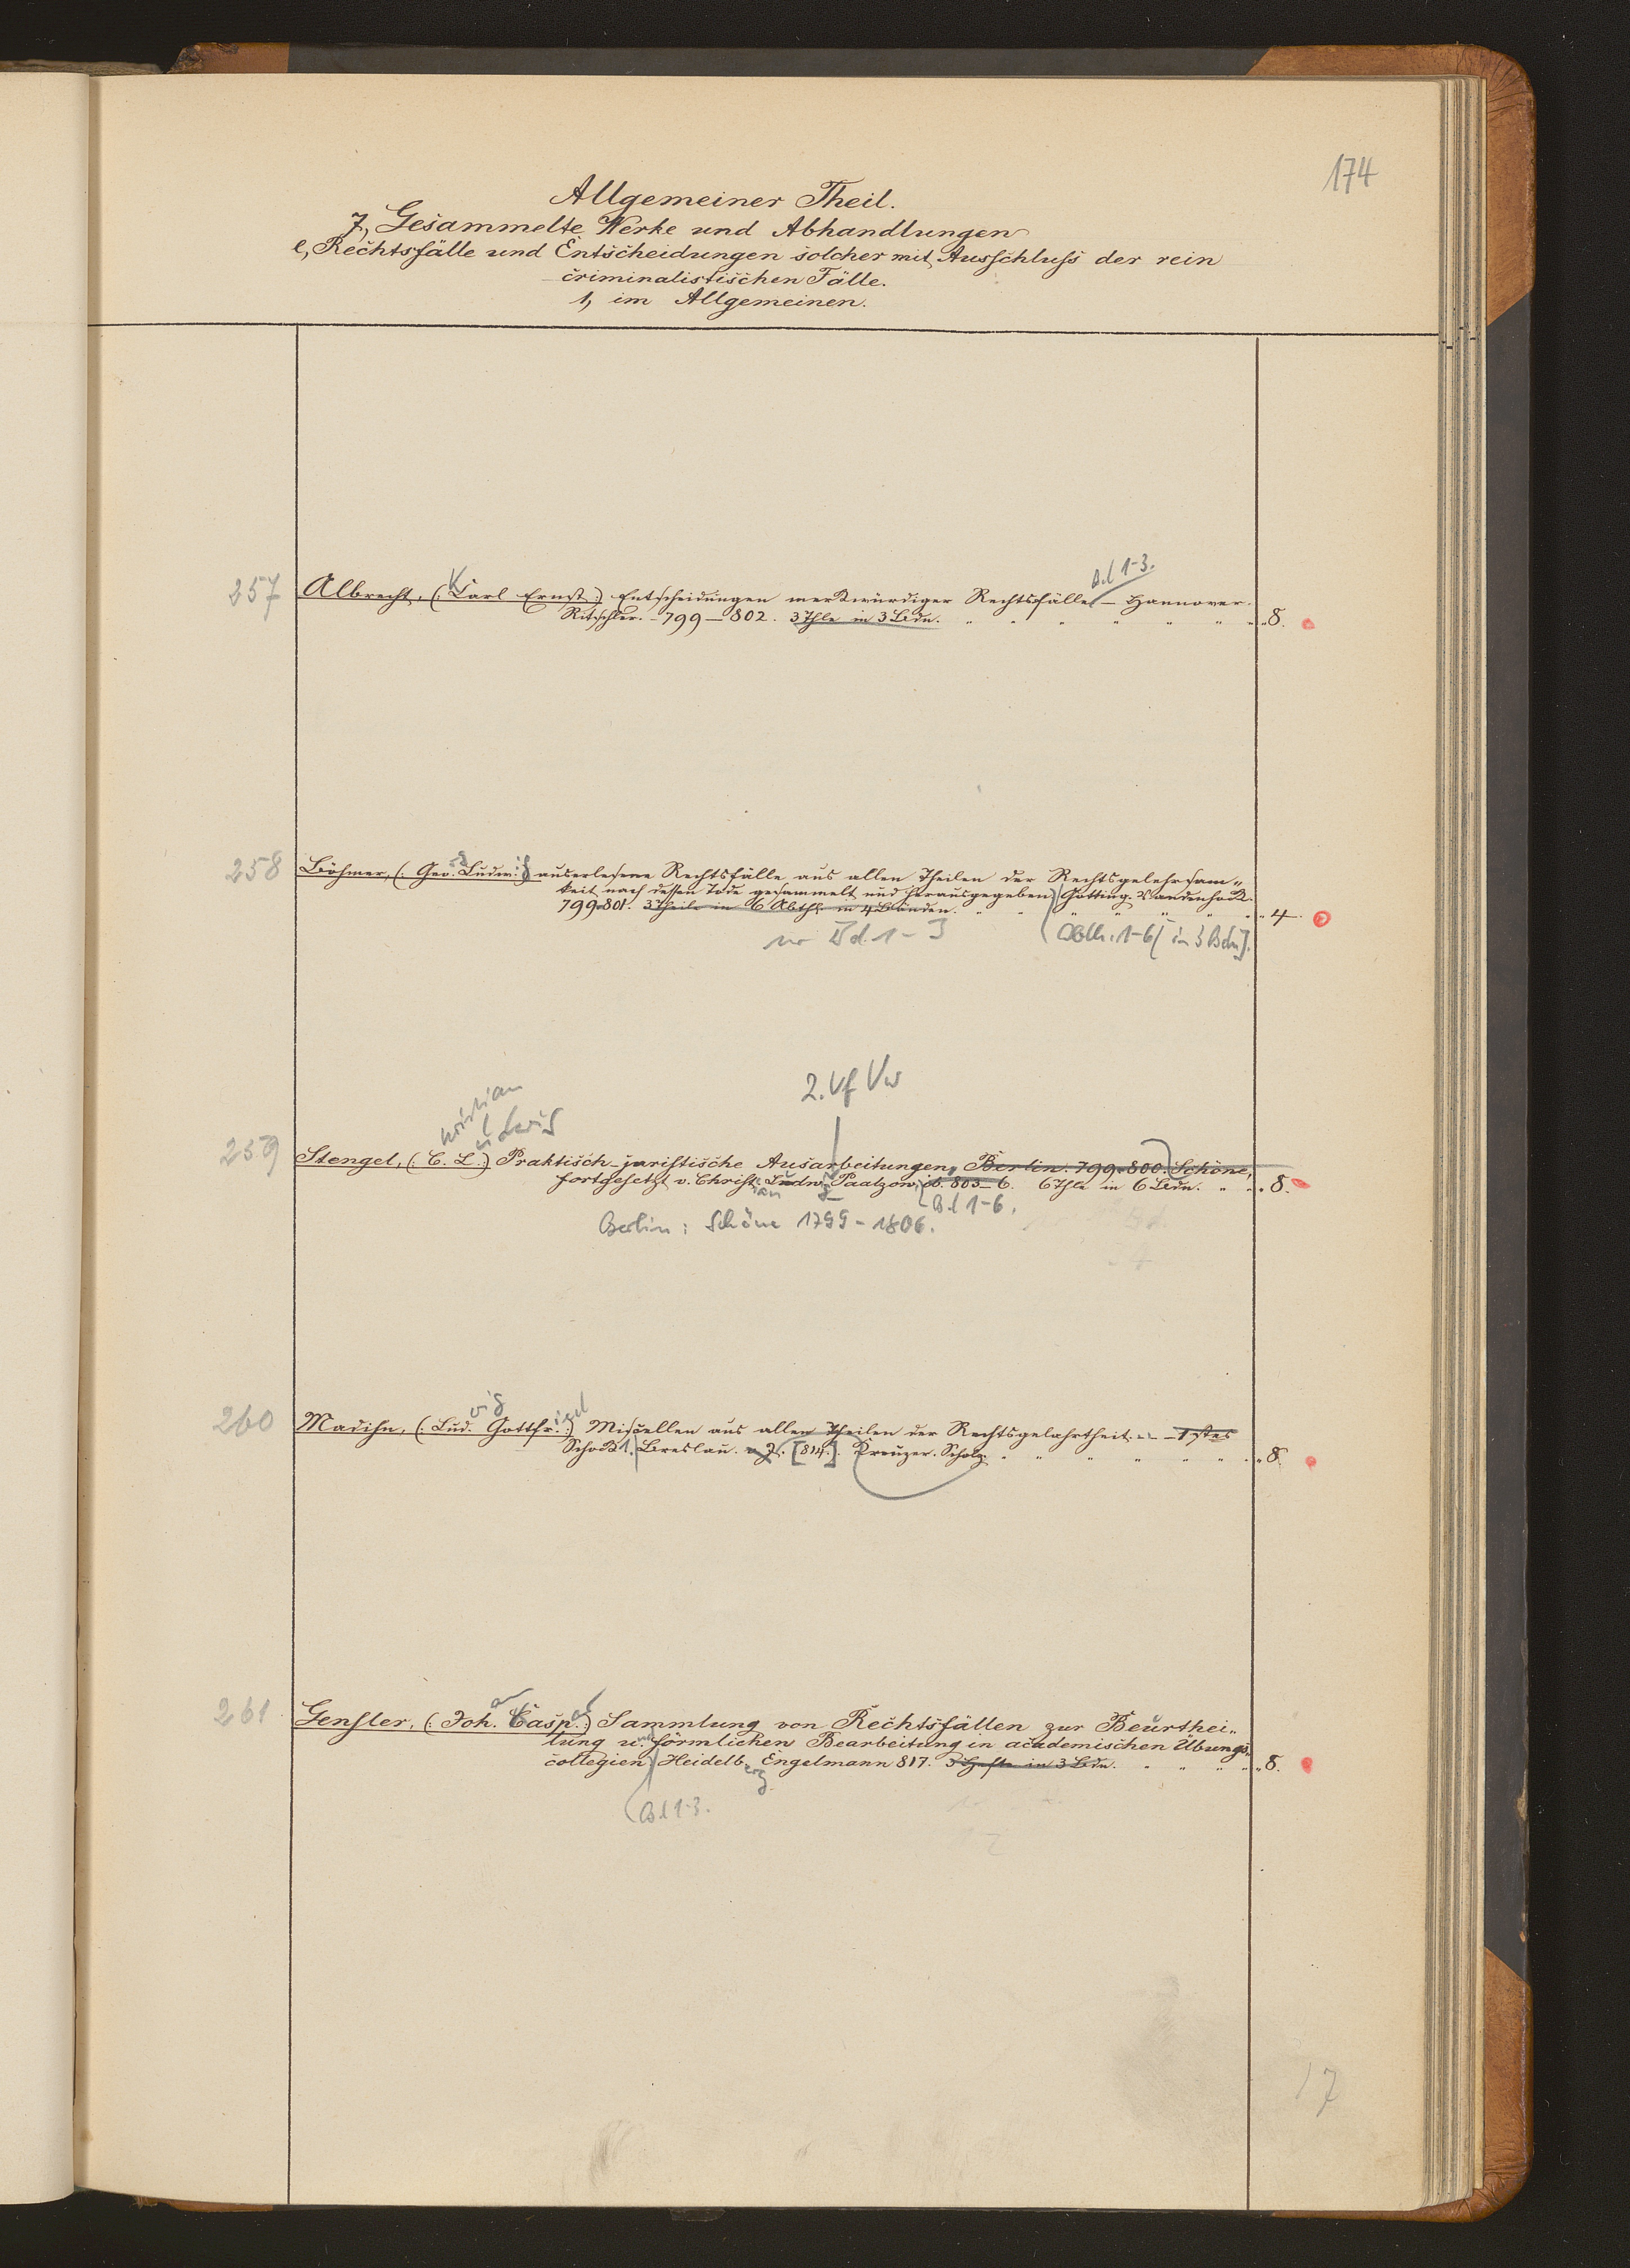 174
Allgemeiner Theil.
7, Gesammelte Werke und Abhandlungen
e, Rechtsfälle und Entscheidungen solcher mit Ausschluss der rein
criminalistischen Fälle.
1, im Allgemeinen.
Bd 1-3.
257 Albrecht, (: Carl Ernst :) Entscheidungen merkwürdiger Rechtsfälle – Hannover.
Ritschler. – 799 – 802. 3 Thle in 3 Bdn. „ 8.
258 Böhmer, (: Geo. Ludwig :) auserlesene Rechtsfälle aus allen Theilen der Rechtsgelehrsam„
keit nach dessen Tode gesammelt und herausgegeben Götting. Vandenhoek.
799-801. 3 Theile in 6 Abthl. in 4 Bänden. „ 4.
Bd. 1-3 Abth. 1-6 [in 3 Bdn].
2. Vf Vw
hristian
udwig
259 Stengel, (: C. L. :) Praktisch-juristische Ausarbeitungen, Berlin. 799-800. Schöne,
fortgesetzt v. Christian Ludw. Paalzow, ib. 805-6. 6 Thle in 6 Bdn. „ 8.
Bd 1-6.
Berlin: Schöne 1799-1806.
260 Madihn, (: Lud. Gottfr. :) Miscellen aus allen Theilen der Rechtsgelahrtheit. – 1stes
Schock 1. Breslau. [814]. Kreuzer. Scholz. „ 8.
261 Gensler, (: Joh. Casp. :) Sammlung von Rechtsfällen zur Beurthei„
lung und förmlichen Bearbeitung in academischen Übungs„
collegien Heidelberg Engelmann 817. 3 Hefte in 3 Bdn. „ 8.
Bd 1-3.
17